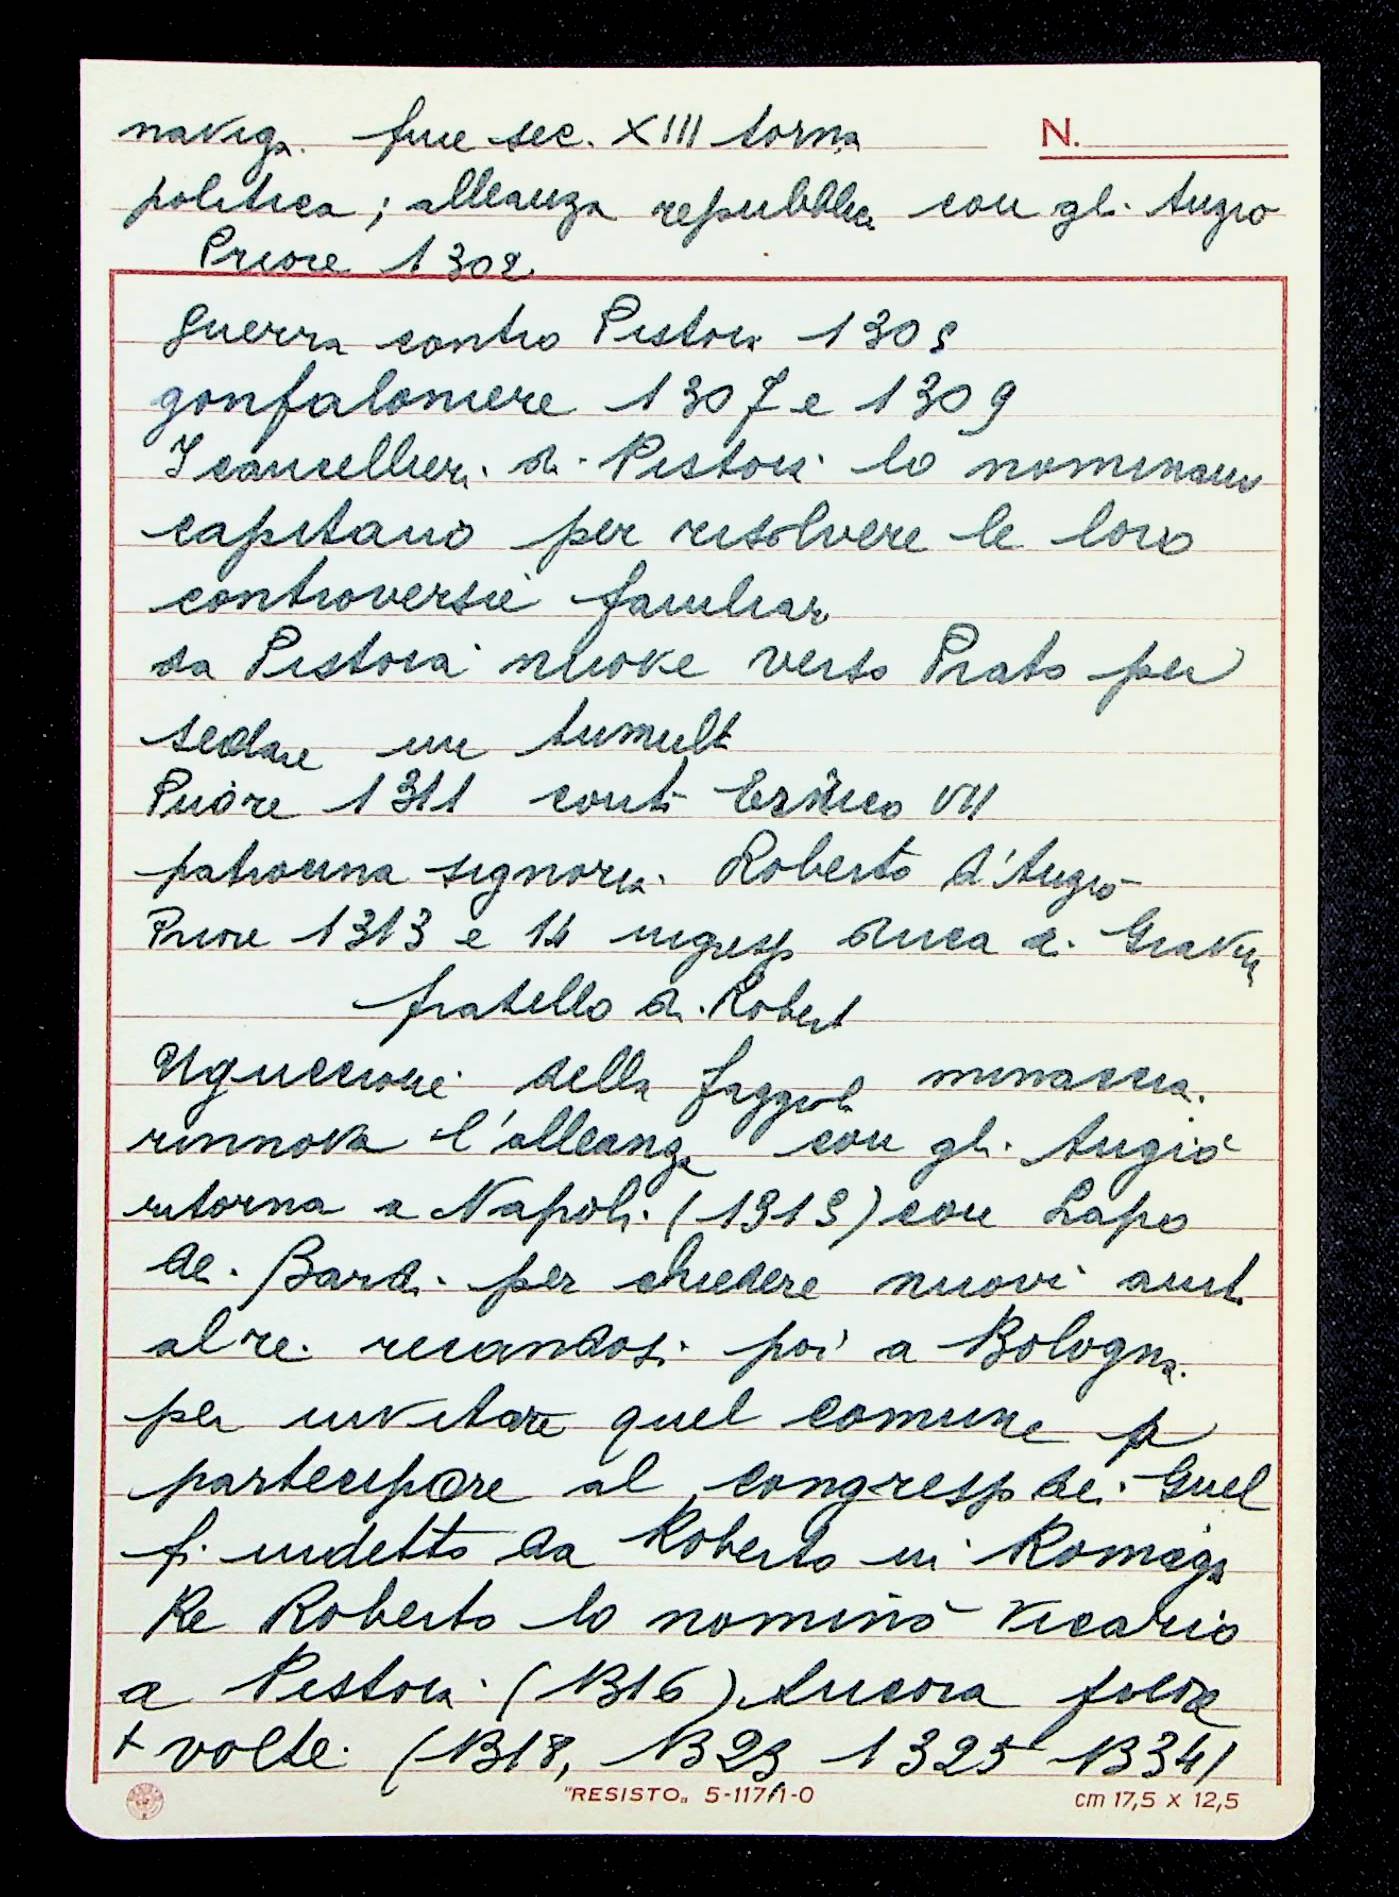 naviga. fine sec. XIII torna
N.
politica; alleanza repubblica con gli Angiò
Priore 1302.
Guerra contro Pistoia 1305
gonfaloniere 1307 e 1309
I cancellieri di Pistoia lo nominano
capitano per risolvere le loro
controversie familiari
da Pistoia muove verso Prato per
sedare un tumult
Priore 1311 contr Enrico VII
patrocina signoria Roberto d'Angiò
Priore 1313 e 14 ingresso duca di Gravina
fratello di Robert
Uguccione della Faggiola minaccia.
rinnova l'alleanza con gli Angiò
ritorna a Napoli (1315) con Lapo
dei Bardi per chiedere nuovi aiuti
al re. recandosi poi a Bologna.
per invitare quel comune a
partecipare al congresso dei Guel
fi indetto da Roberto in Romagna
Re Roberto lo nominò vicario
a Pistoia (1316) Ancora priore
+ volte. (1318, 1323 1325 1334)
"RESISTO„ 5-117/1-0
cm 17,5 x 12,5